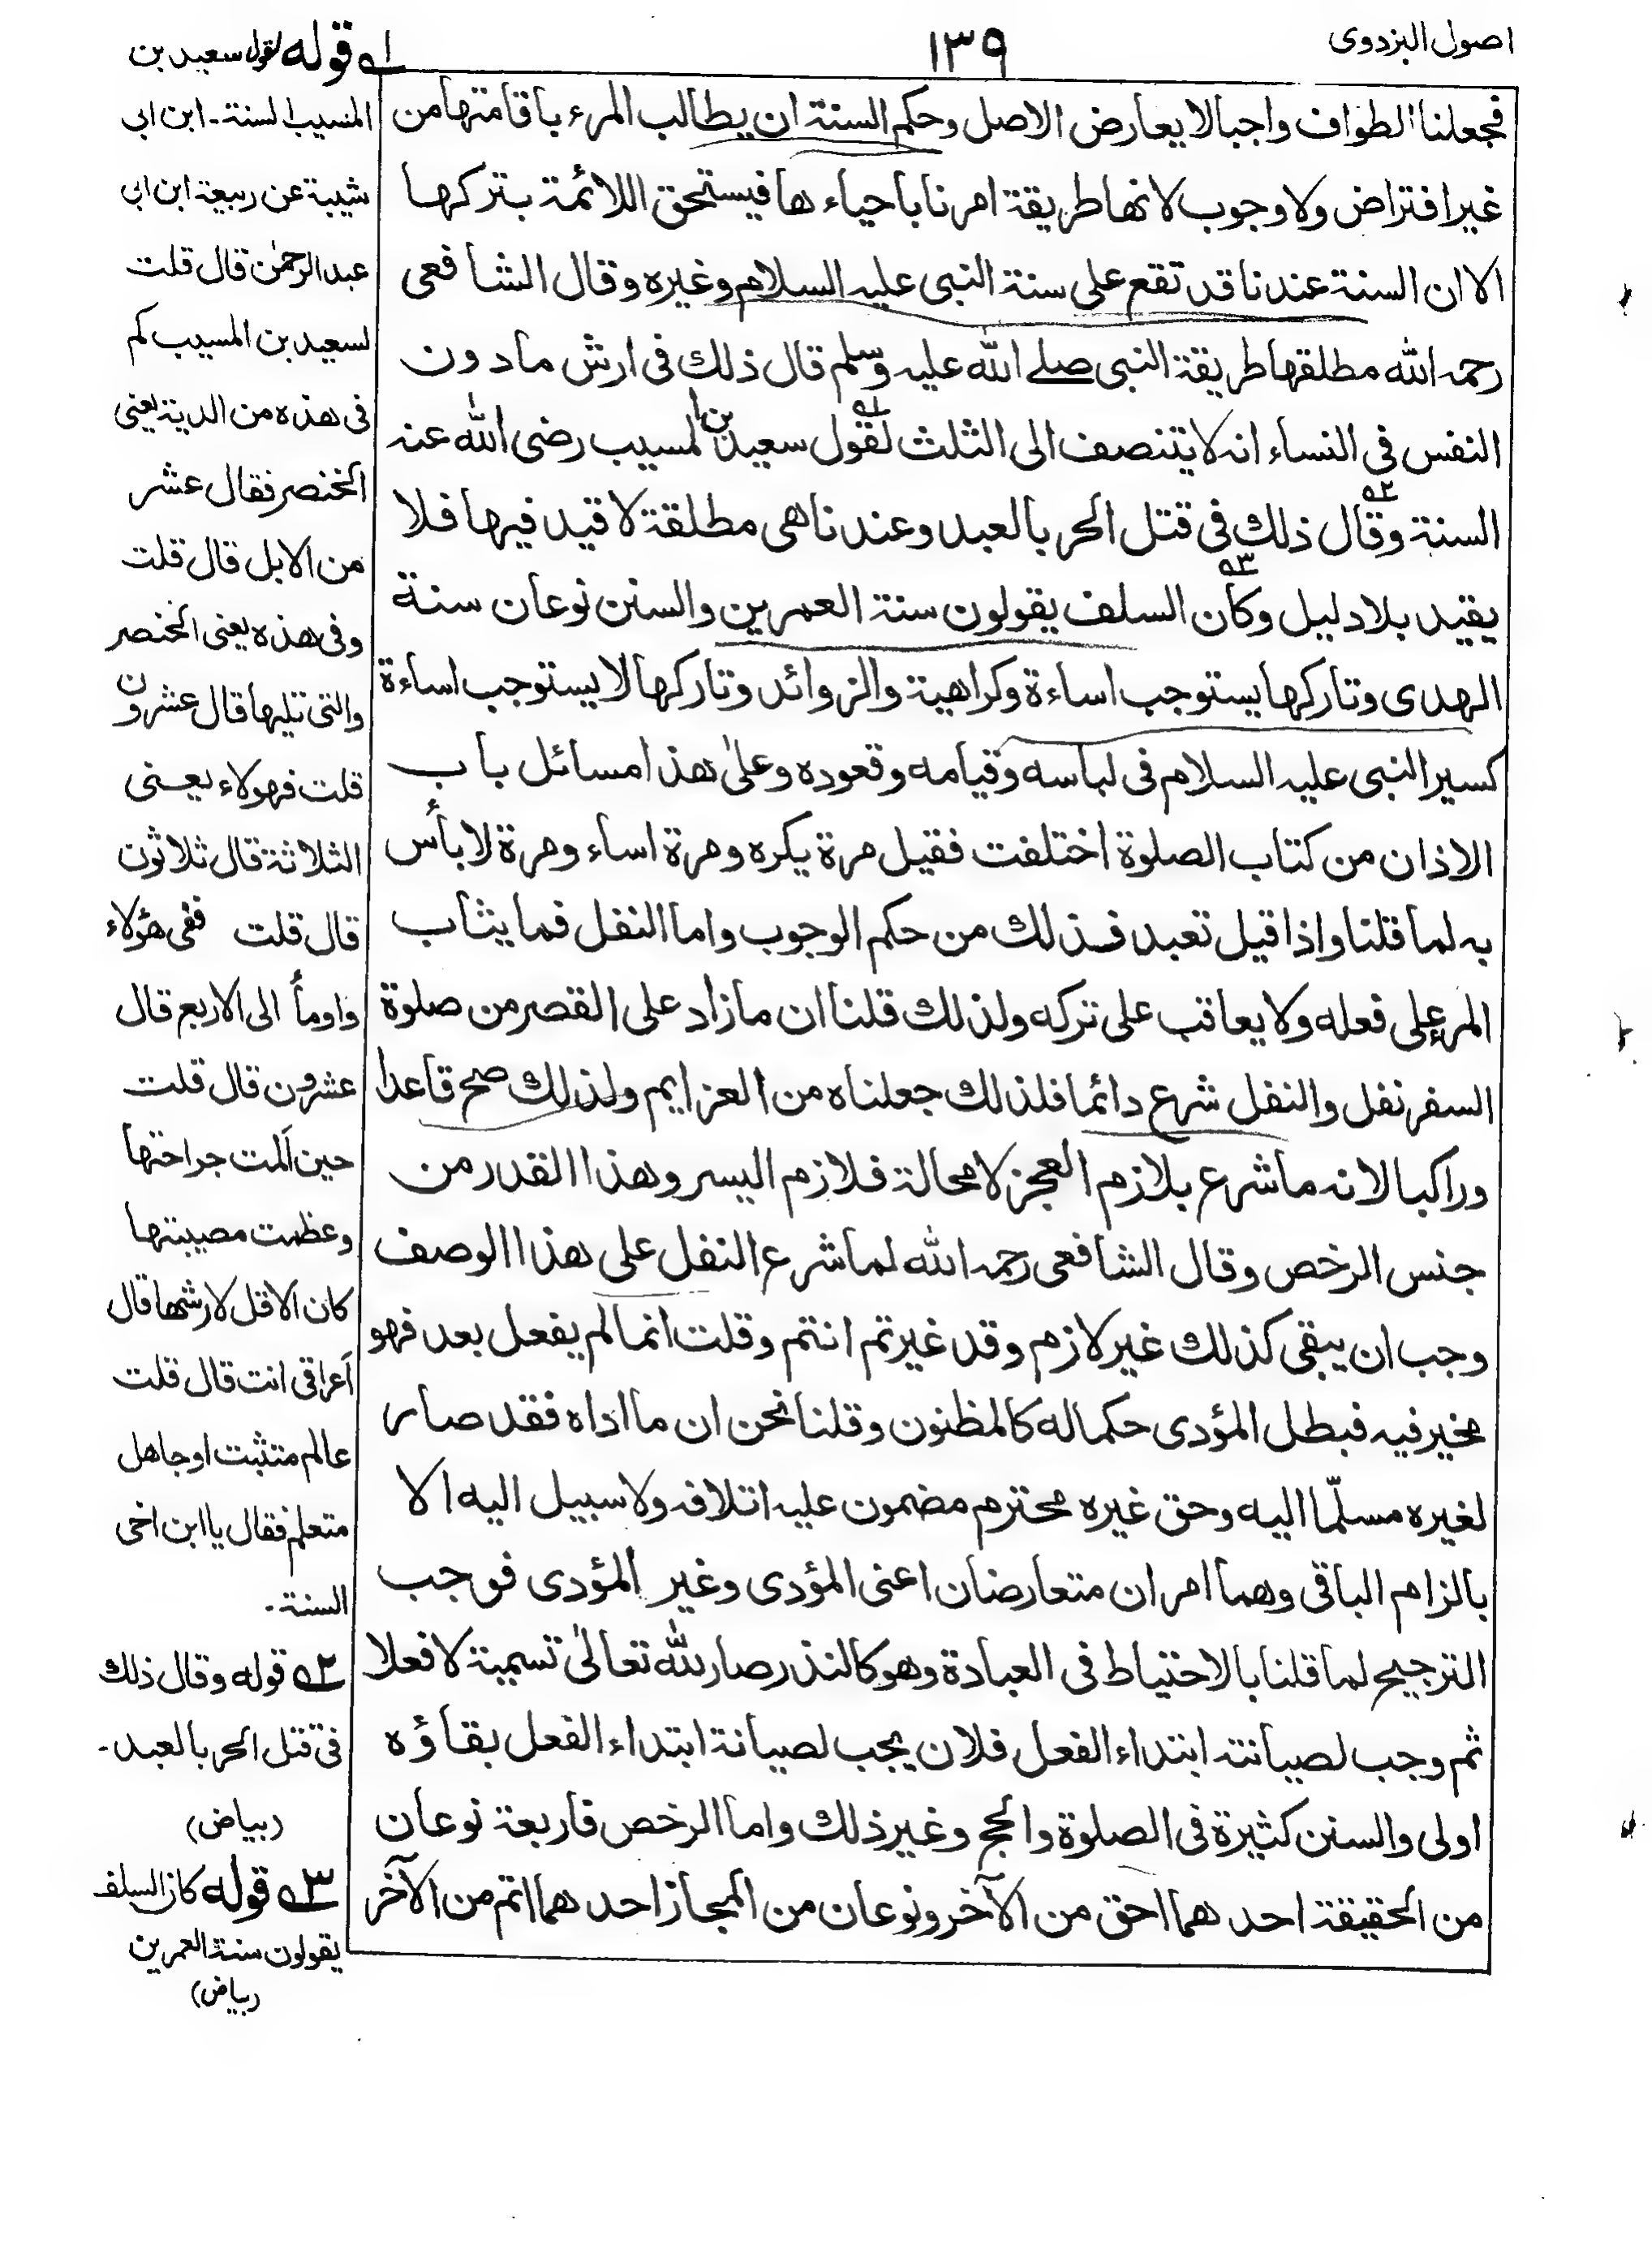 اصول البزدوی
۱۳۹
فجعلنا الطواف واجبا لا یعارض الاصل وحکم السنة ان یطالب المرء باقامتها من
غیر افتراض ولا وجوب لانها طریقة امرنا باحیاء ها فیستحق اللائمة بترکها
الا ان السنة عندنا قد تقع علی سنة النبی علیہ السلام وغیره وقال الشافعی
رحمہ اللہ مطلقها طریقة النبی صلے اللہ علیہ وسلم قال ذلك فی ارش ما دون
النفس فی النساء انہ لا یتنصف الی الثلث لقول سعید بن المسیب رضی اللہ عنہ
السنة وقال ذلك فی قتل الحر بالعبد وعندنا هی مطلقة لا قید فیها فلا
یقید بلا دلیل وکان السلف یقولون سنة العمرین والسنن نوعان سنة
الهدی وتارکها یستوجب اساءة وکراهیة والزوائد وتارکها لا یستوجب اساءة
کسیر النبی علیہ السلام فی لباسه وقیامه وقعوده وعلی هذا مسائل باب
الاذان من کتاب الصلوة اختلفت فقیل مرة یکره ومرة اساء ومرة لا بأس
به لما قلنا واذا قیل تعبد فذلك من حکم الوجوب واما النفل فما یثاب
المرء علی فعله ولا یعاقب علی ترکه ولذلك قلنا ان ما زاد علی القصر من صلوة
السفر نفل والنفل شرع دائما فلذلك جعلناه من العزایم ولذلك صح قاعدا
وراکبا لانه ما شرع بلازم العجز لا محالة فلازم الیسر وهذا القدر من
جنس الرخص وقال الشافعی رحمہ اللہ لما شرع النفل علی هذا الوصف
وجب ان یبقی کذلك غیر لازم وقد غیرتم انتم وقلت انما لم یفعل بعد فهو
مخیر فیه فبطل المؤدی حکما له کالمظنون وقلنا نحن ان ما اداه فقد صار
لغیره مسلّما الیه وحق غیره محترم مضمون علیہ اتلافہ ولا سبیل الیه الا
بالزام الباقی وهما امران متعارضان اعنی المؤدی وغیر المؤدی فوجب
الترجیح لما قلنا بالاحتیاط فی العبادة وهو کالنذر صار للہ تعالیٰ تسمیة لا فعلا
ثم وجب لصیانتہ ابتداء الفعل فلان یجب لصیانة ابتداء الفعل بقاؤه
اولی والسنن کثیرة فی الصلوة والحج وغیر ذلك واما الرخص فاربعة نوعان
من الحقیقة احدهما احق من الآخر ونوعان من المجاز احدهما اتم من الآخر
۱ه قوله لقول سعید بن
المسیب السنة۔ ابن ابی
شیبة عن ربیعة ابن ابی
عبد الرحمٰن قال قلت
لسعید بن المسیب کم
فی هذه من الدیة یعنی
الخنصر فقال عشر
من الابل قال قلت
وفی هذه یعنی الخنصر
والتی تلیها قال عشرون
قلت فهولاء یعنی
الثلاثة قال ثلاثون
قال قلت ففی هؤلاء
واومأ الی الاربع قال
عشرون قال قلت
حین آلمت جراحتها
وعظمت مصیبتها
کان الاقل لارشها قال
أعراقی انت قال قلت
عالم متثبت او جاهل
متعلم فقال یا ابن اخی
السنة۔
۲ه قوله وقال ذلك
فی قتل الحر بالعبد۔
(بیاض)
۳ه قوله کان السلف
یقولون سنة العمرین
(بیاض)